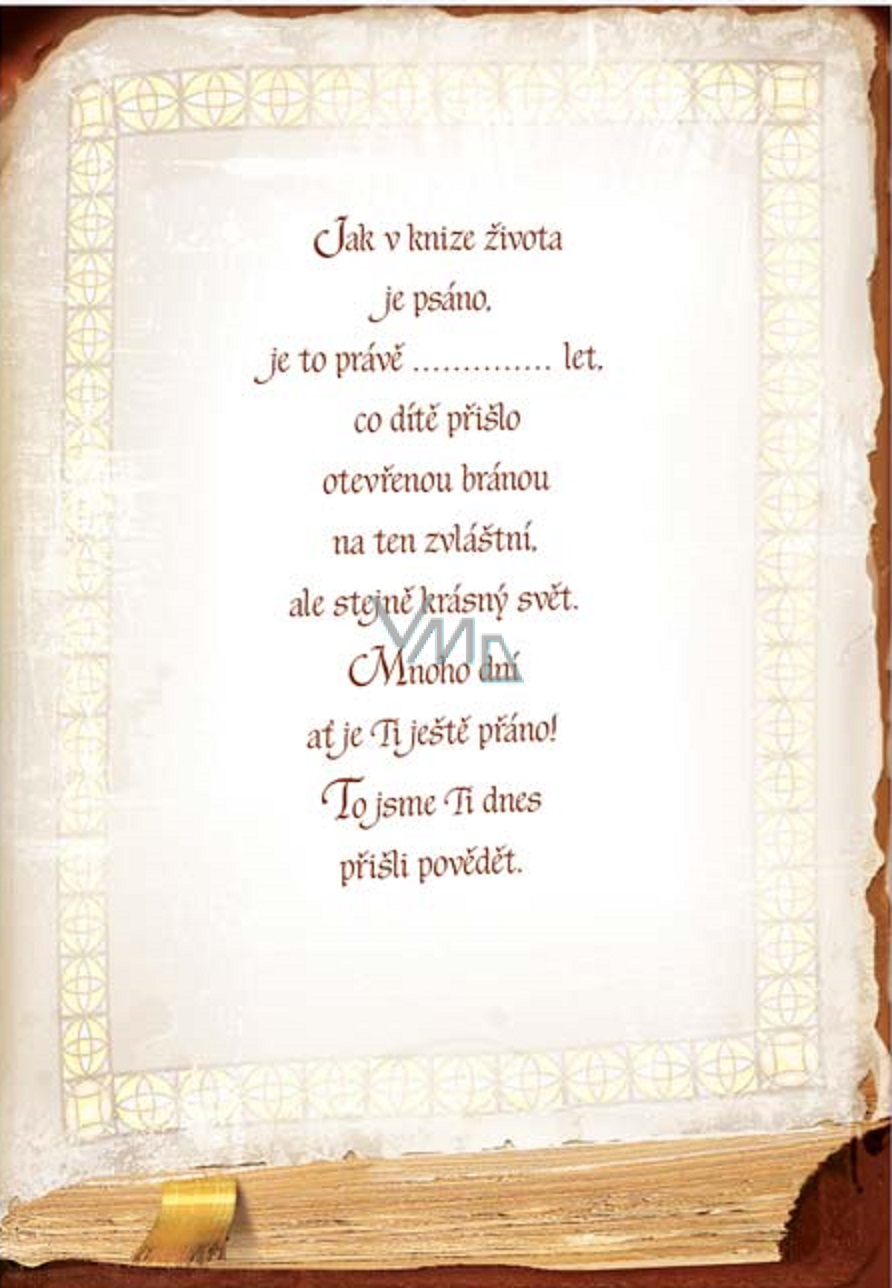 Jak v knize života
je psáno,
je to právě .............. let,
co dítě přišlo
otevřenou bránou
na ten zvláštní,
ale stejně krásný svět.
Mnoho dní
ať je Ti ještě přáno!
To jsme Ti dnes
přišli povědět.
VMD